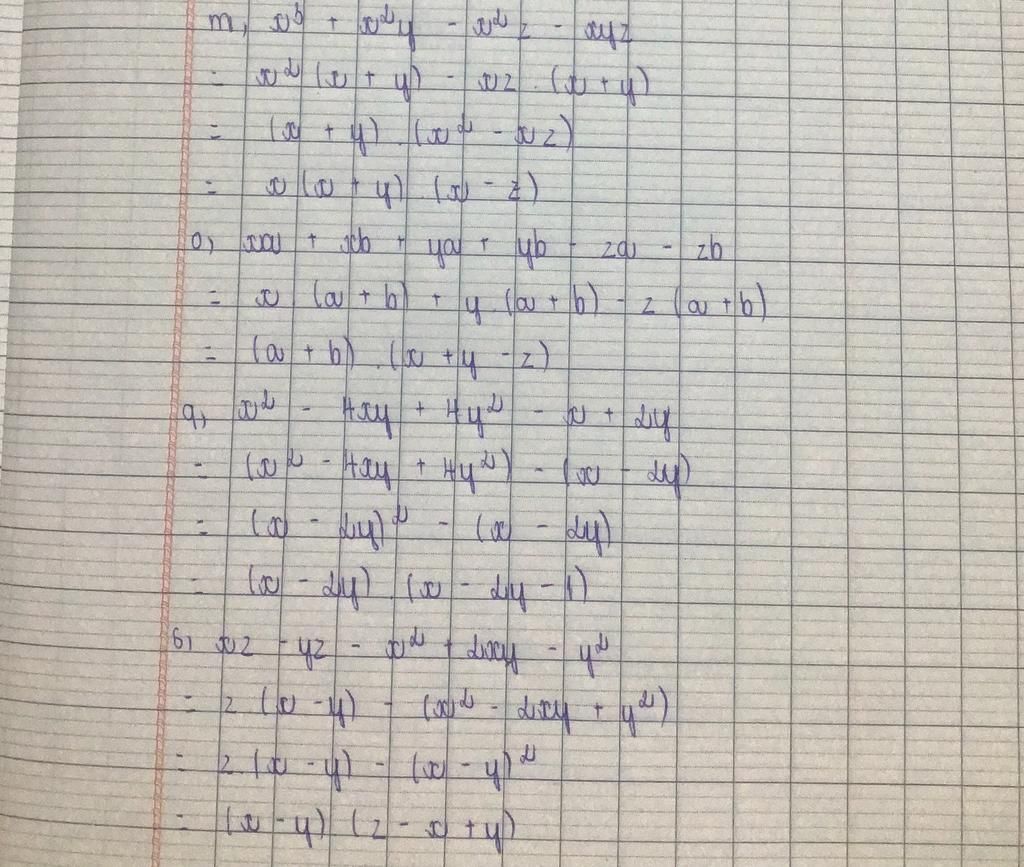 m, x³ + x²y - x²z - xyz
= x² (x + y) - xz . (x + y)
= (x + y) . (x² - xz)
= x (x + y) (x - z)
o, xa + xb + ya + yb - za - zb
= x (a + b) + y . (a + b) - z (a + b)
= (a + b) . (x + y - z)
q, x² - 4xy + 4y² - x + 2y
= (x² - 4xy + 4y²) - (x - 2y)
= (x - 2y)² - (x - 2y)
= (x - 2y) . (x - 2y - 1)
s, xz - yz - x² + 2xy - y²
= z (x - y) - (x² - 2xy + y²)
= z (x - y) - (x - y)²
= (x - y) (z - x + y)